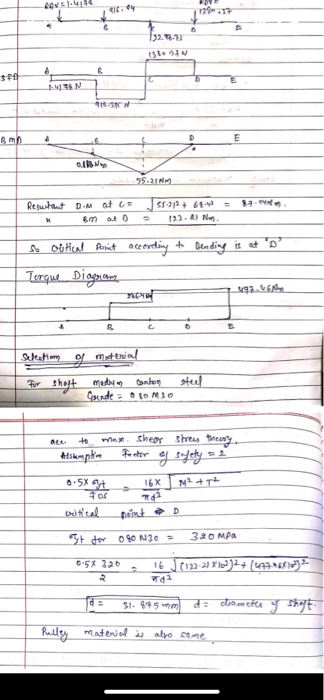 RAV = 1.4178
916.94
1380.37
A B C D E
1380.37 N
SFD A B E
C D
1.4178 N
B M D A B C D E
0.188 Nm
55.21 Nm
Resultant B.M at C =
BM at D = 122.21 Nm.
So critical Point according to Bending is at 'D'
Torque Diagram
A B C D E
Selection of material
For shaft medium carbon steel
Grade = 080 M30
acc to max. shear stress theory,
Assumption Factor of safety = 2
0.5 x Syt / FOS = 16 x / πd³ √ M² + T²
critical point → D
Syt for 080 M30 = 320 MPa
0.5 x 320 / 2 = 16 / πd³
d = 31.875 mm d = diameter of shaft.
Pulley material is also same